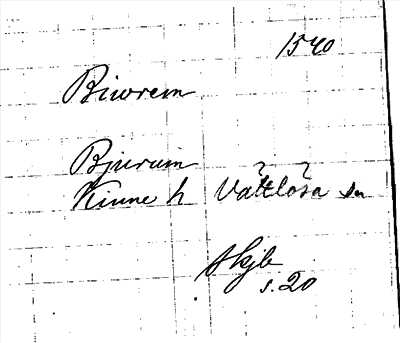 1540
Biurem
Bjurum
Kinne h Vättlösa sn
Skjb
s. 20